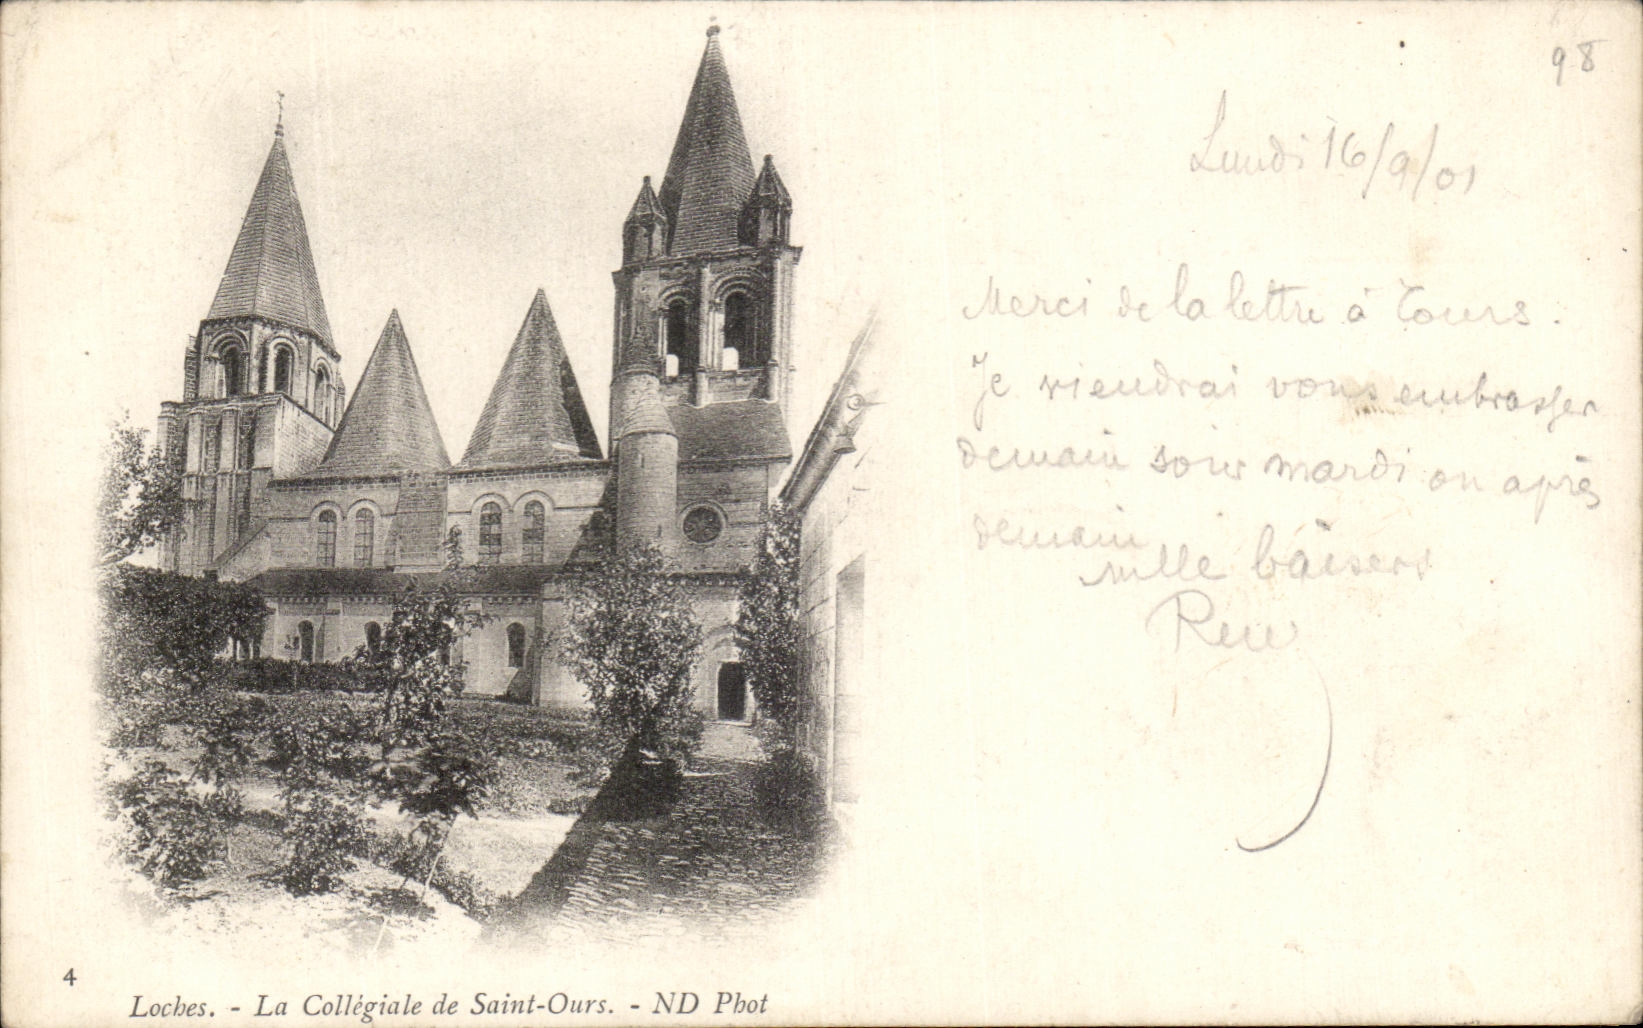 98
Lundi 16/9/01
Merci de la lettre à Tours.
Je viendrai vous embrasser
demain soir mardi ou après
demain
mille baisers
4
Loches. - La Collégiale de Saint-Ours. - ND Phot